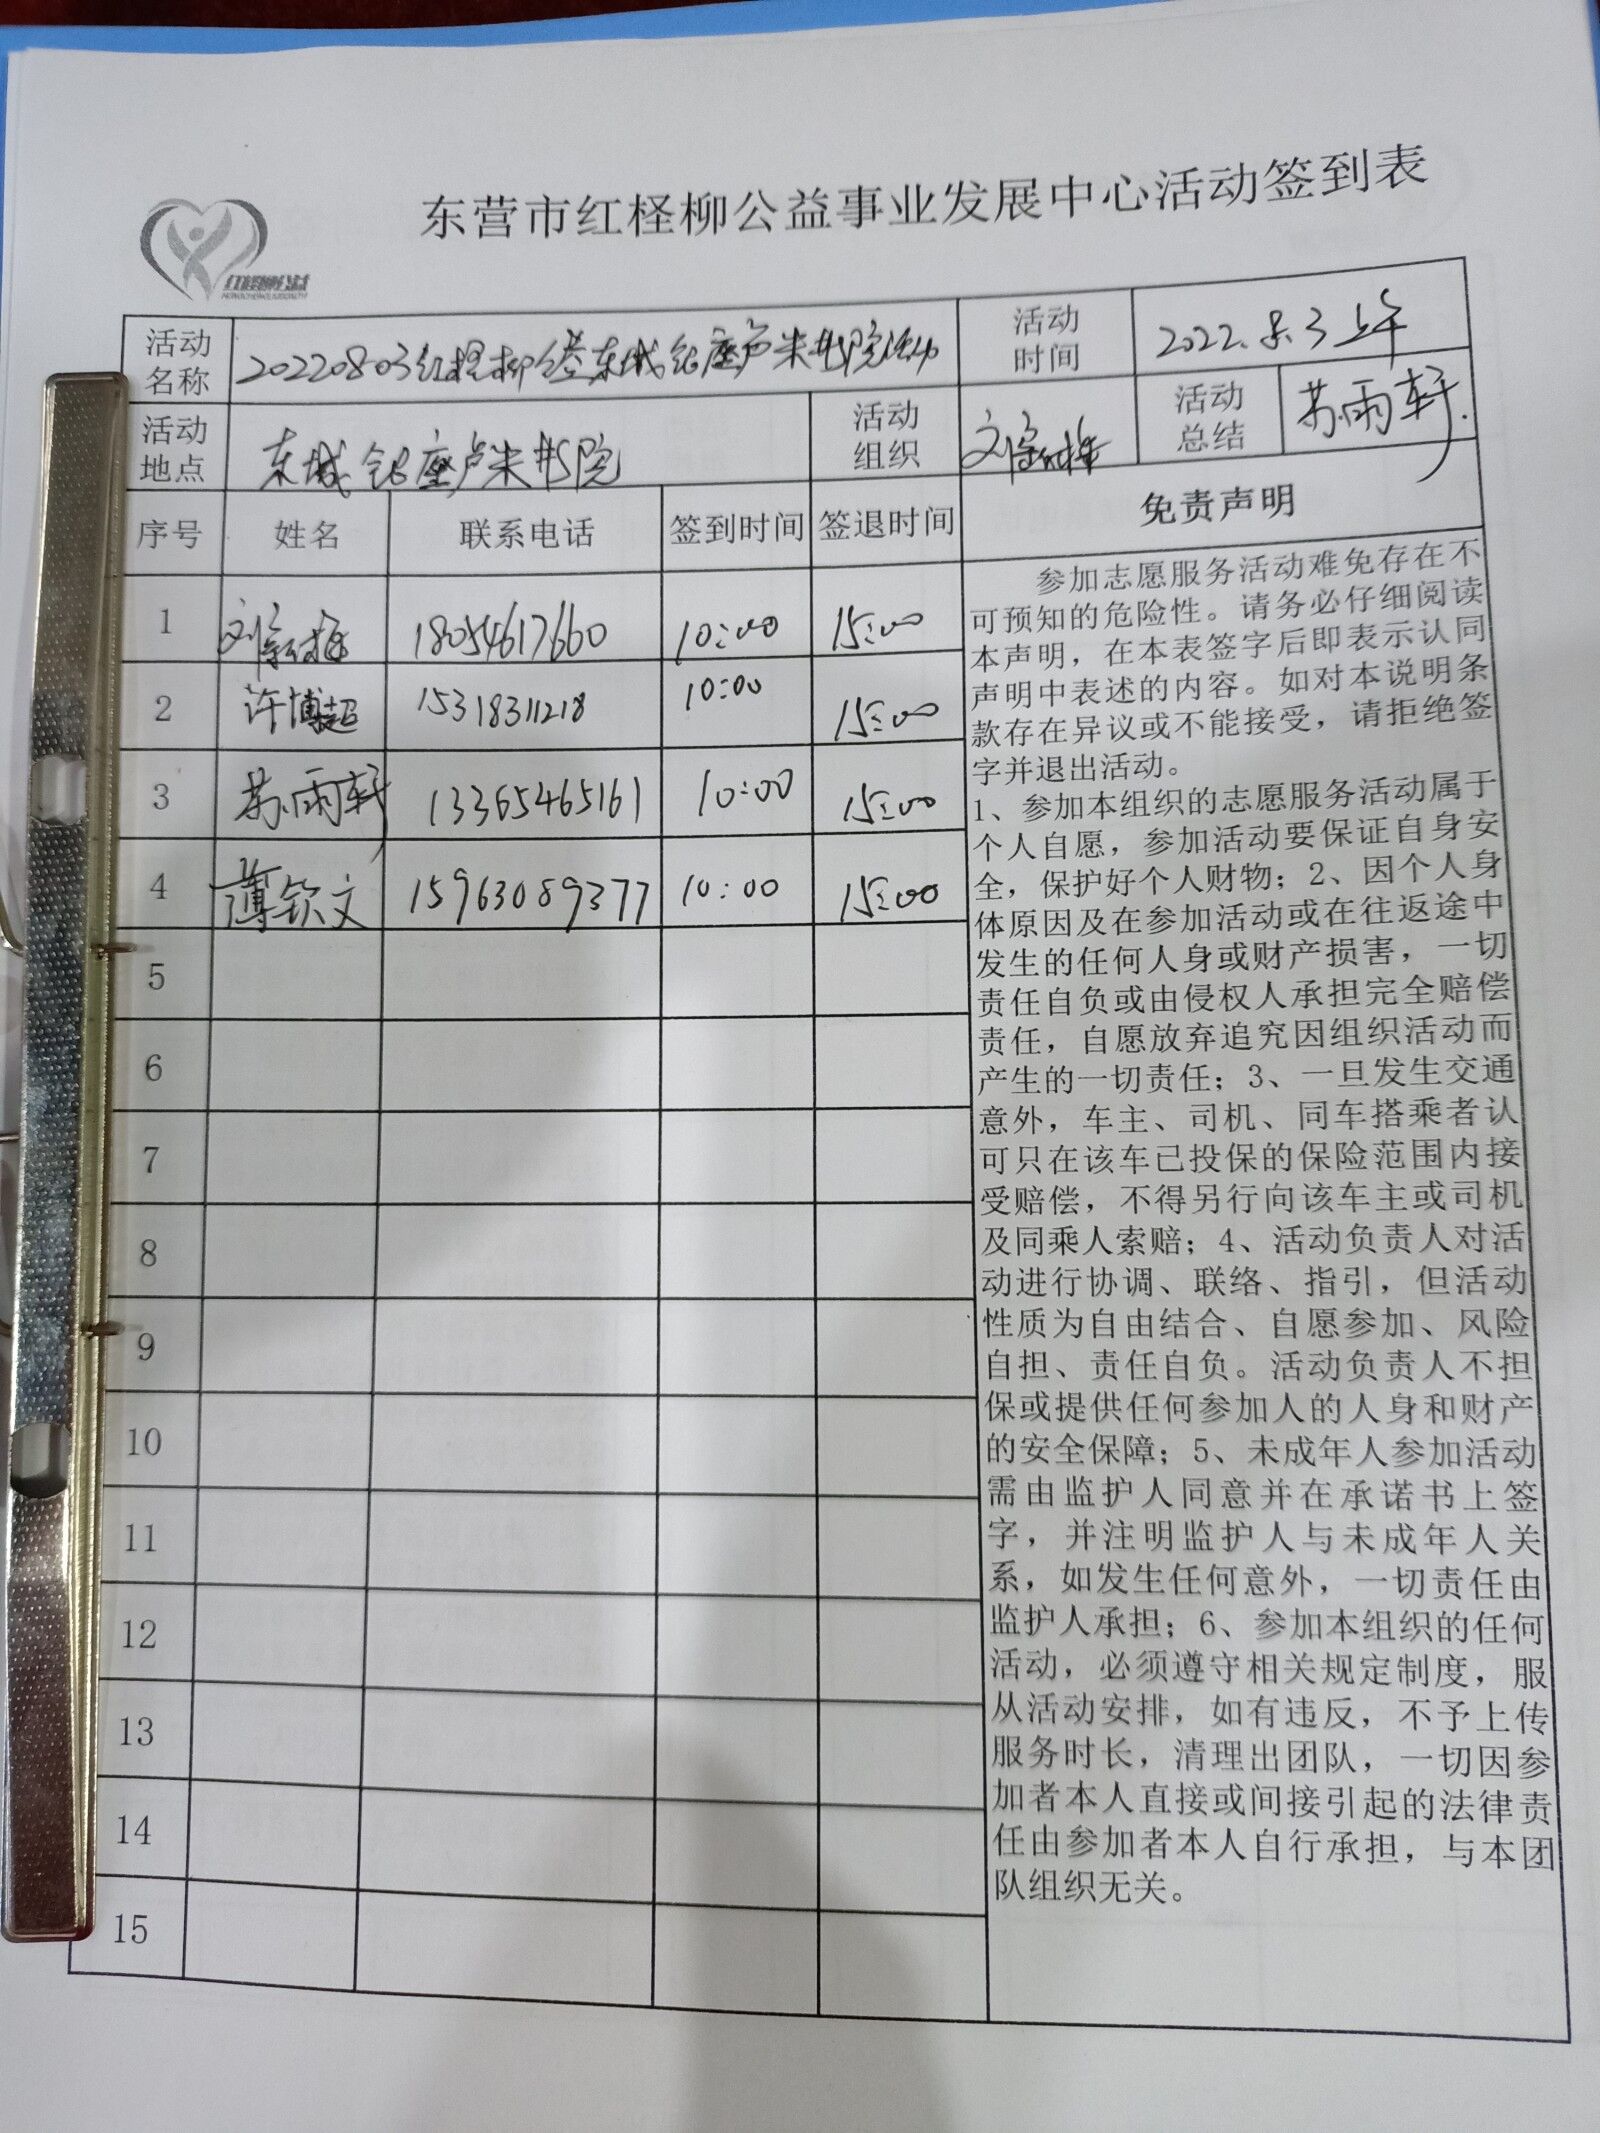 东营市红柽柳公益事业发展中心活动签到表
红柽柳公益
活动名称 20220803红柽柳公益东城银座卢米书院活动 活动时间 2022.8.3上午
活动地点 东城银座卢米书院 活动组织 活动总结 苏雨轩
序号 姓名 联系电话 签到时间 签退时间 免责声明
1 18054617660 10:00 15:00
2 许博超 15318311218 10:00 15:00
3 苏雨轩 13365465161 10:00 15:00
4 薄钦文 15963089377 10:00 15:00
5
6
7
8
9
10
11
12
13
14
15
参加志愿服务活动难免存在不
可预知的危险性。请务必仔细阅读
本声明，在本表签字后即表示认同
声明中表述的内容。如对本说明条
款存在异议或不能接受，请拒绝签
字并退出活动。
1、参加本组织的志愿服务活动属于
个人自愿，参加活动要保证自身安
全，保护好个人财物；2、因个人身
体原因及在参加活动或在往返途中
发生的任何人身或财产损害，一切
责任自负或由侵权人承担完全赔偿
责任，自愿放弃追究因组织活动而
产生的一切责任；3、一旦发生交通
意外，车主、司机、同车搭乘者认
可只在该车已投保的保险范围内接
受赔偿，不得另行向该车主或司机
及同乘人索赔；4、活动负责人对活
动进行协调、联络、指引，但活动
性质为自由结合、自愿参加、风险
自担、责任自负。活动负责人不担
保或提供任何参加人的人身和财产
的安全保障；5、未成年人参加活动
需由监护人同意并在承诺书上签
字，并注明监护人与未成年人关
系，如发生任何意外，一切责任由
监护人承担；6、参加本组织的任何
活动，必须遵守相关规定制度，服
从活动安排，如有违反，不予上传
服务时长，清理出团队，一切因参
加者本人直接或间接引起的法律责
任由参加者本人自行承担，与本团
队组织无关。